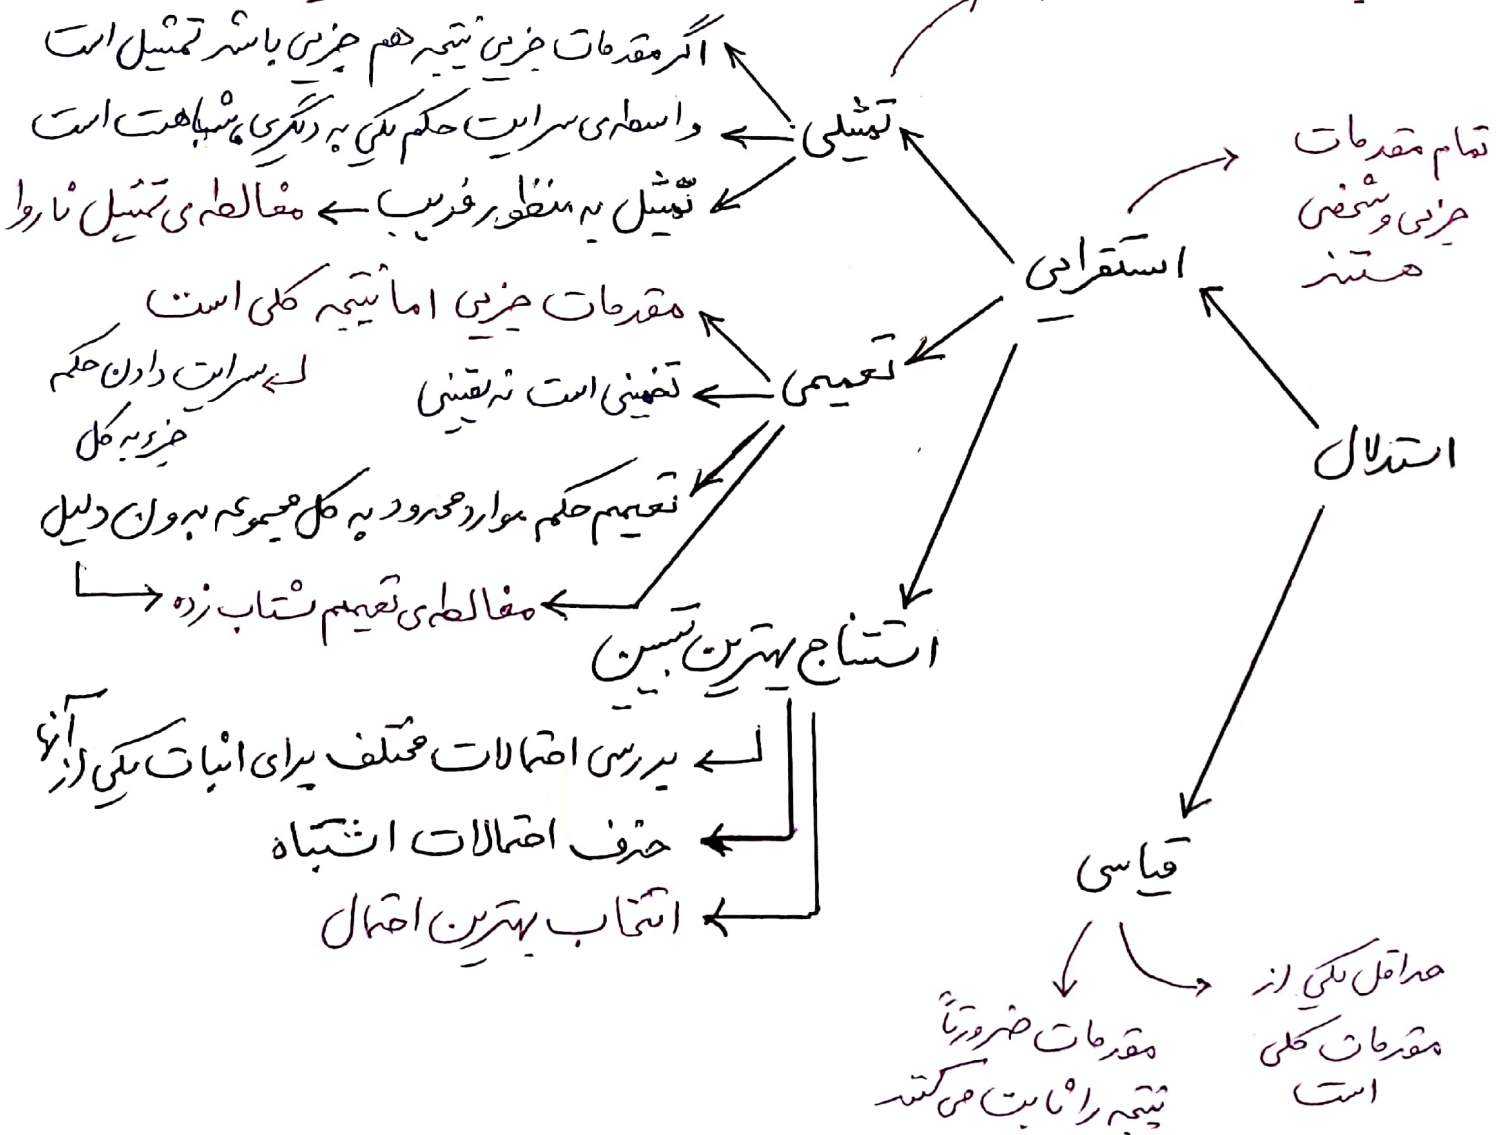 استدلال
استقرایی
تمام مقدمات
جزیی و شخصی
هستند
تمثیلی
اگر مقدمات جزیی نتیجه هم جزیی باشد تمثیل است
واسطه‌ی سرایت حکم یکی به دیگری، شباهت است
تمثیل به منظور فریب ← مغالطه‌ی تمثیل ناروا
تعمیمی
مقدمات جزیی اما نتیجه کلی است
سرایت دادن حکم
جزء به کل
تخمینی است نه یقینی
تعمیم حکم موارد محدود به کل مجموعه بدون دلیل
مغالطه‌ی تعمیم شتاب زده
استنتاج بهترین تبیین
بررسی احتمالات مختلف برای اثبات یکی از آنها
حذف احتمالات اشتباه
انتخاب بهترین احتمال
قیاسی
حداقل یکی از
مقدمات کلی
است
مقدمات ضرورتاً
نتیجه را ثابت می‌کنند